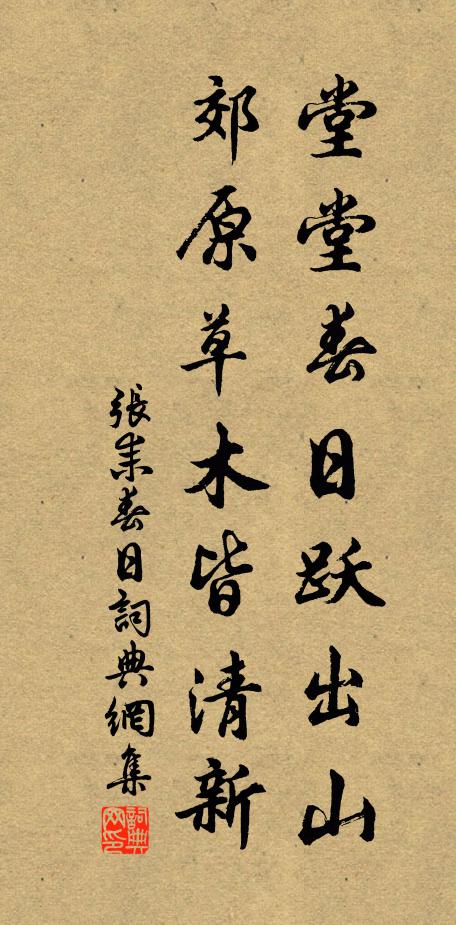 堂堂春日跃出山
郊原草木皆清新
張耒春日詞典網集
詞典网印